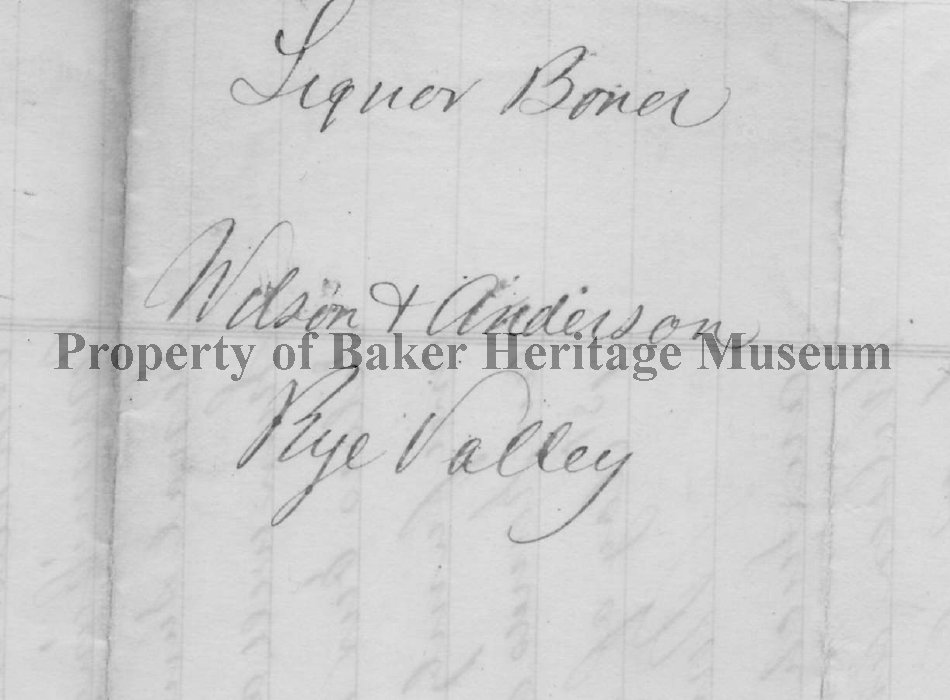 Liquor Boner
Wilson & Anderson
Property of Baker Heritage Museum
Rye Valley